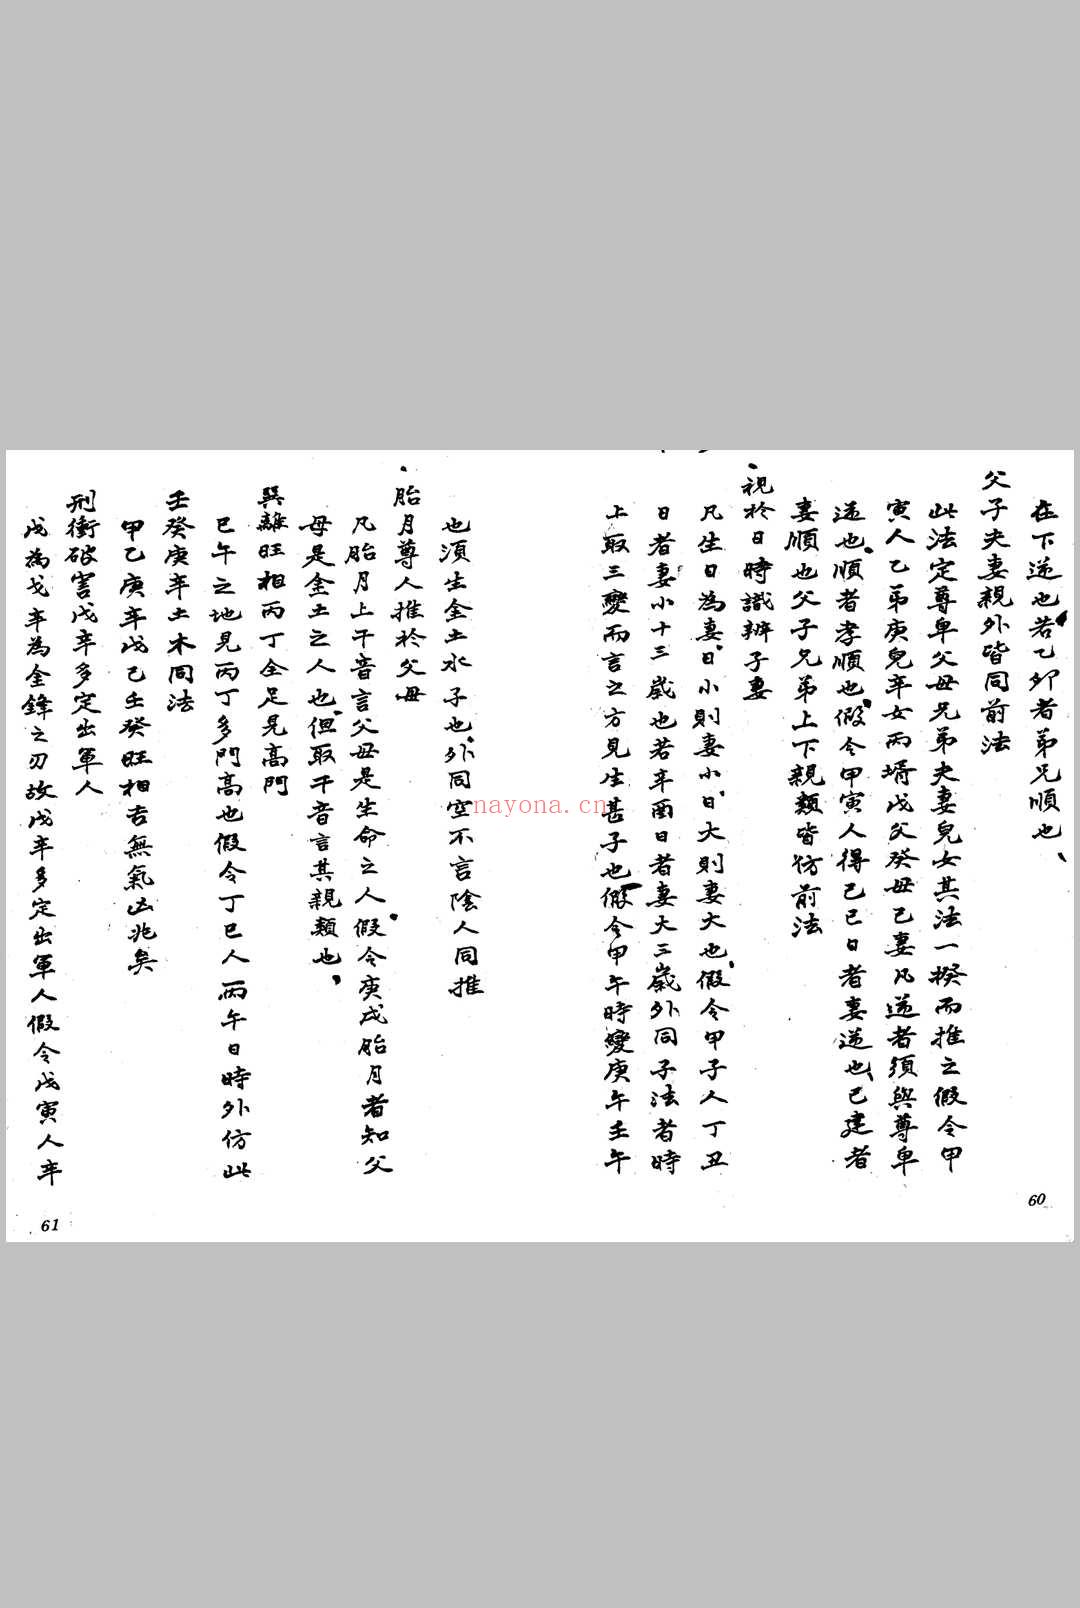 在下逆也若乙卯者弟兄順也
父子夫妻親外皆同前法
此法定尊卑父母兄弟夫妻兒女其法一揆而推之假令甲
寅人乙弟庚兒辛女丙壻戊父癸母己妻凡逆者須與尊卑
逆也順者孝順也假令甲寅人得己巳日者妻逆也己建者
妻順也父子兄弟上下親類皆彷前法
視於日時識辨子妻
凡生日為妻日小則妻小日大則妻大也假令甲子人丁丑
日者妻小十三歲也若辛酉日者妻大三歲外同子法者時
上取三變而言之方見生甚子也假令甲午時變庚午壬午
60
也須生金土水子也外同空不言陰人同推
胎月尊人推於父母
凡胎月上干音言父母是生命之人假令庚戌胎月者知父
母是金土之人也但取干音言其親類也
巽離旺相丙丁全足見高門
巳午之地見丙丁多門高也假令丁巳人丙午日時外仿此
壬癸庚辛土木同法
甲乙庚辛戊己壬癸旺相吉無氣凶兆矣
刑衝破害戊辛多定出軍人
戊為戈辛為金鋒之刃故戊辛多定出軍人假令戊寅人辛
61
nayona.cn